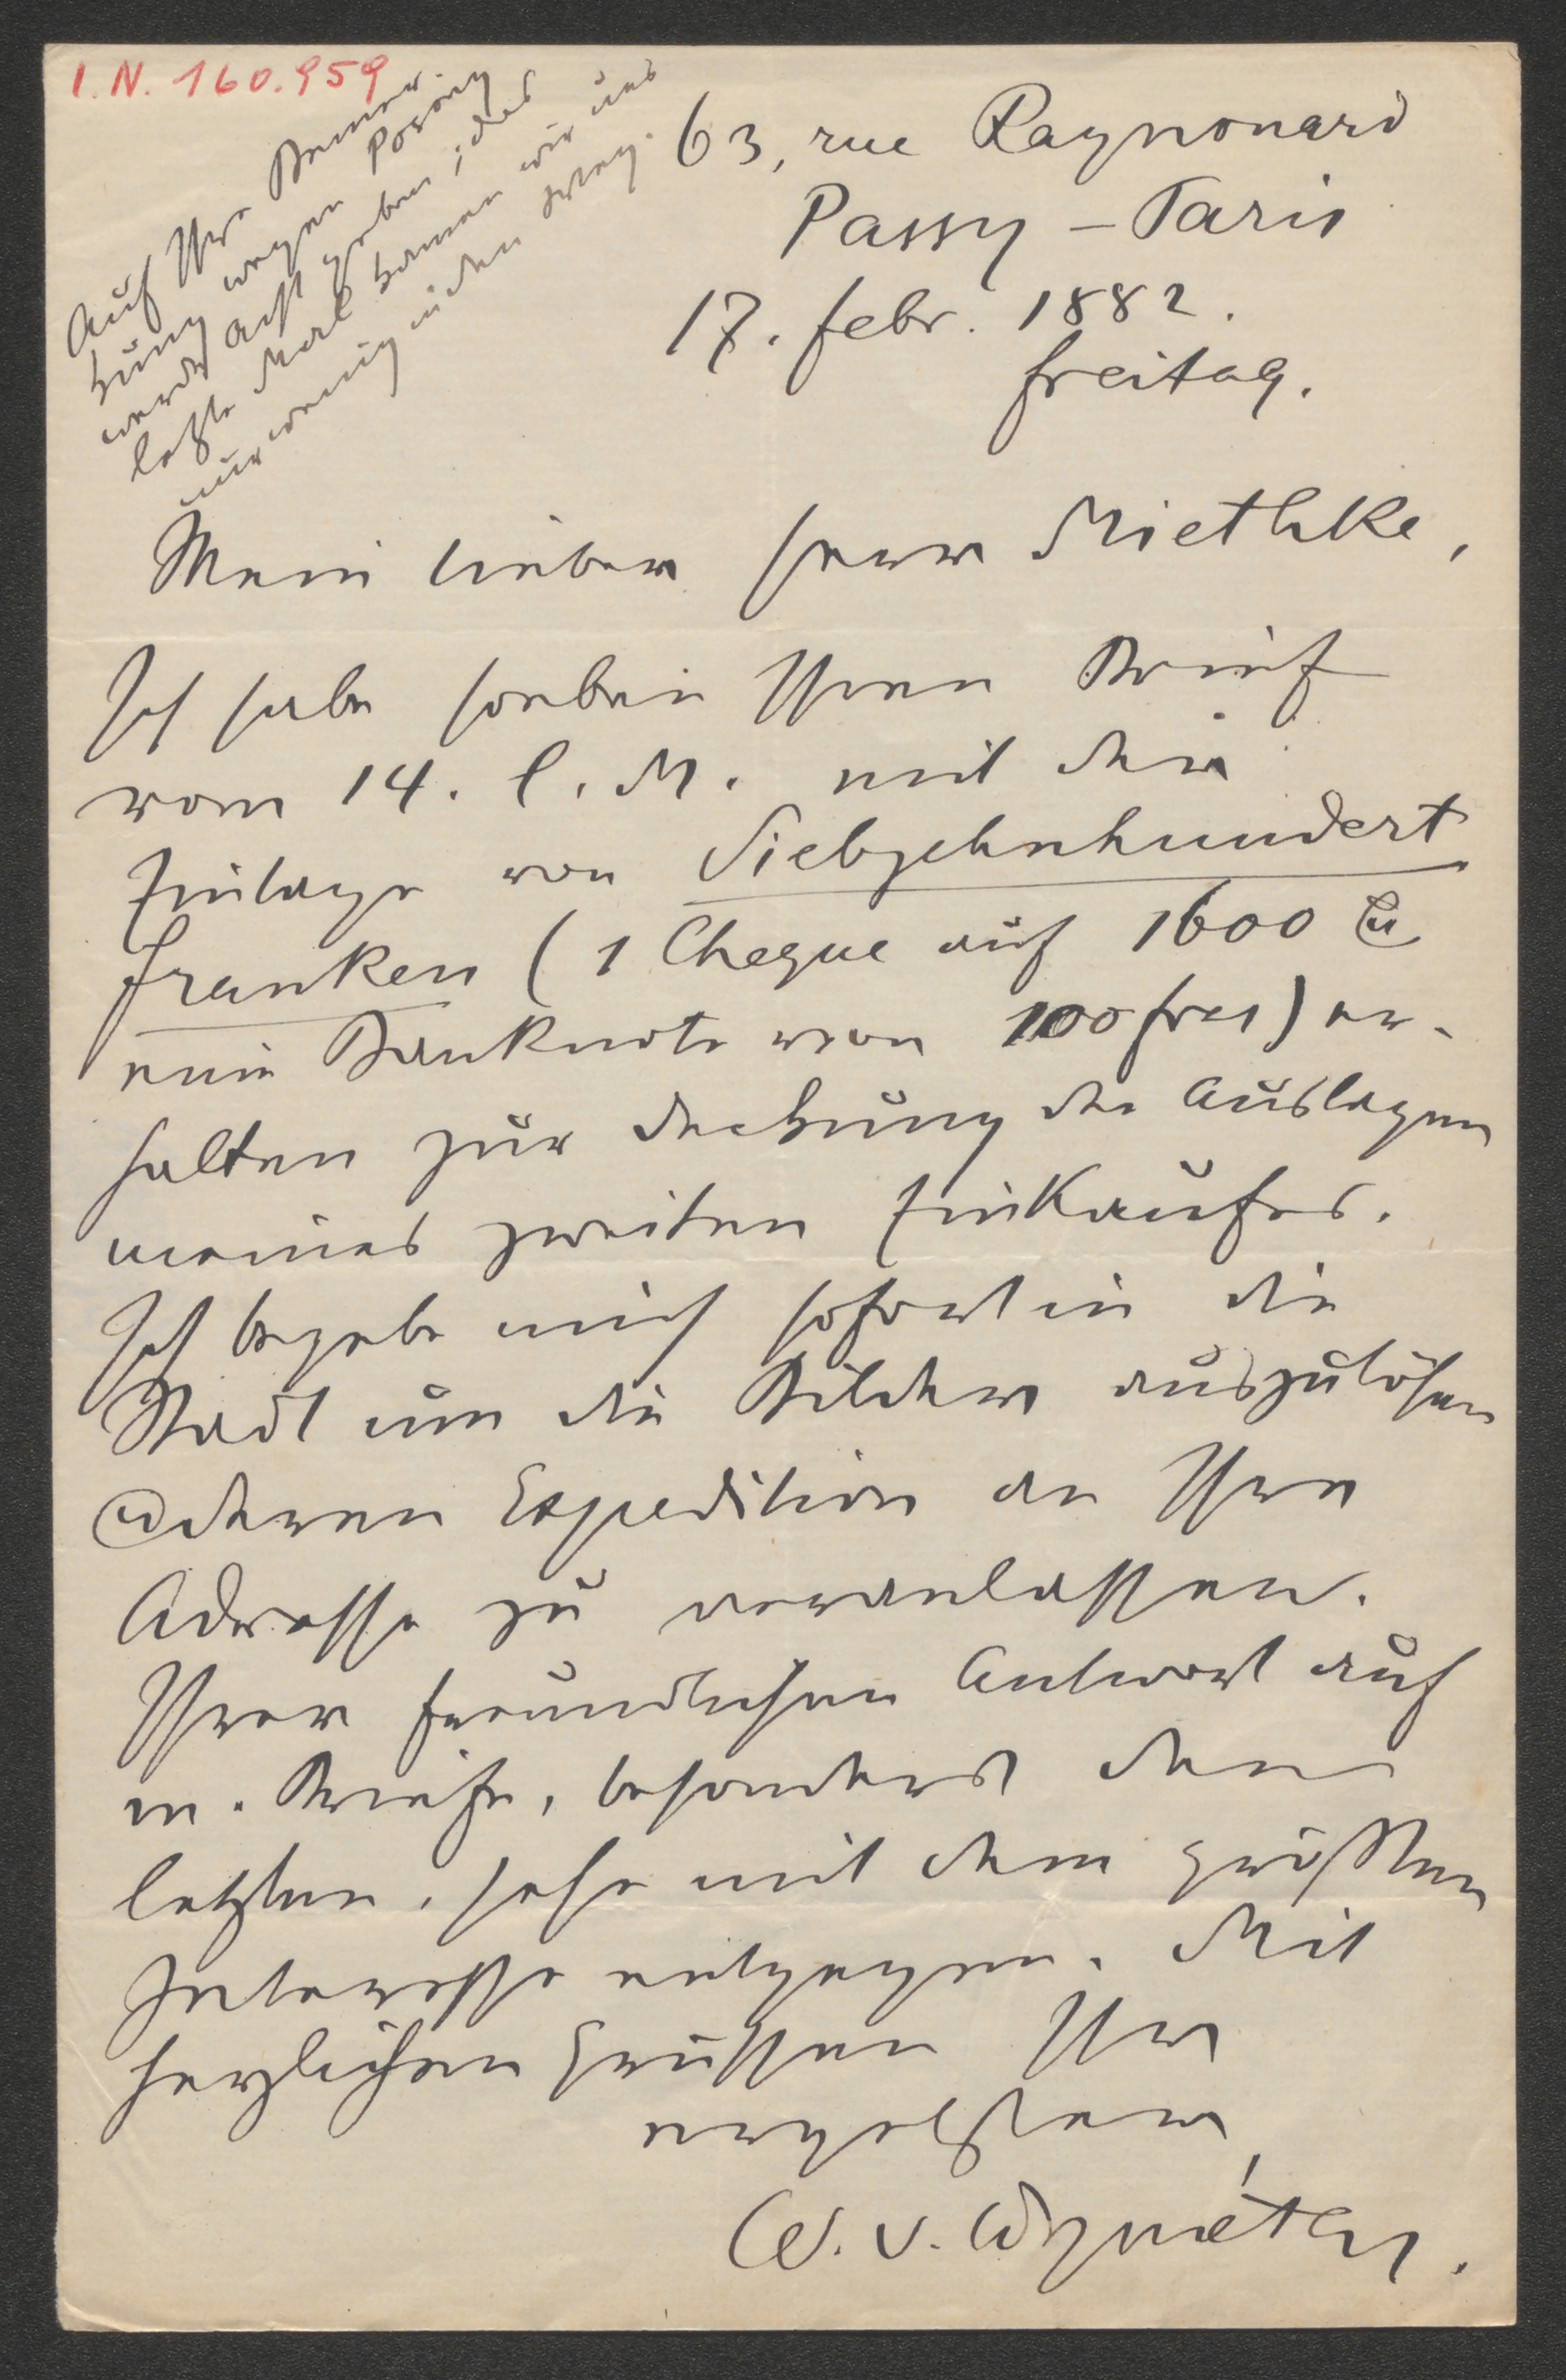 I. N. 160.959
63, rue Raynouard
Passy – Paris
17. Febr. 1882.
Freitag.
Auf Ihre Bemer-
kung wegen
werde acht geben; das
letzte Mal kamen wir uns
nur wenig in den Weg.
Mein lieber Herr Miethke,
Ich habe soeben Ihren Brief
vom 14. l. M. mit der
Einlage von Siebzehnhundert
Franken (1 Cheque auf 1600 &
eine Banknote von 100 frcs) er-
halten zur Deckung der Auslagen
meines zweiten Einkaufes.
Ich begebe mich sofort in die
Stadt um die Bilder auszulösen
& deren Expedition an Ihre
Adresse zu veranlassen.
Ihrer freundlichen Antwort auf
m. Briefe, besonders den
letzten, sehe mit dem größten
Interesse entgegen. Mit
herzlichen Grüssen Ihr
ergebener
v.